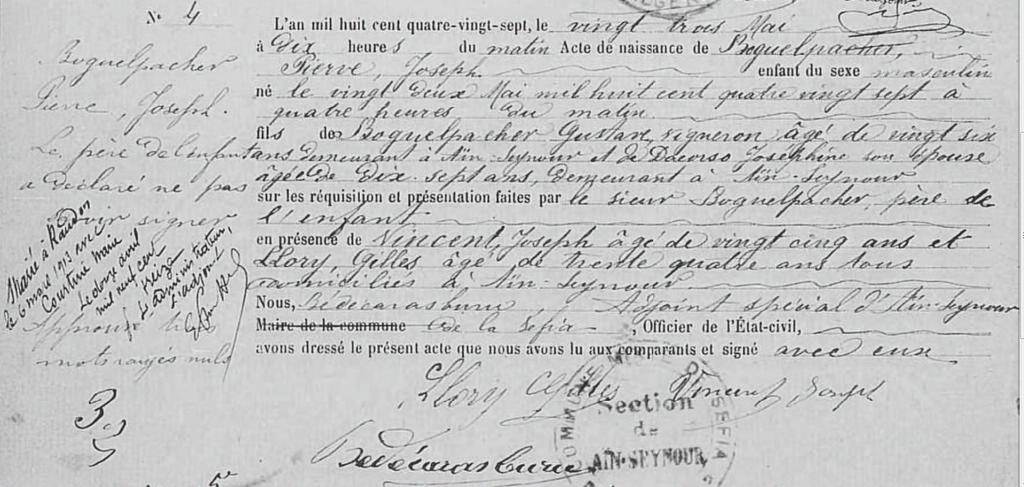 No 4
Boguelpacher
Pierre, Joseph.
Le père de l'enfant
a déclaré ne pas
savoir signer
Marié à Randon
le 6 mars 1913 avec
Courtine Marie
Le douze avril
mil neuf cent
treize
L'administrateur,
L'adjoint
Approuvé trois
mots rayés nuls
L'an mil huit cent quatre-vingt-sept, le vingt trois Mai
à Dix heures du matin Acte de naissance de Boguelpacher,
Pierre, Joseph enfant du sexe masculin
né le vingt deux Mai mil huit cent quatre vingt sept à
quatre heures du matin
fils de Boguelpacher Gustave, vigneron âgé de vingt six
ans demeurant à Aïn-Seynour et de Dacorso Joséphine son épouse
âgée de Dix-sept ans, demeurant à Aïn-Seynour
sur les réquisition et présentation faites par le sieur Boguelpacher, père de
l'enfant
en présence de Vincent, Joseph âgé de vingt cinq ans et
Llory, Gilles âgé de trente quatre ans tous
domiciliés à Aïn-Seynour
Nous, Bédécarasburu, Adjoint spécial d'Aïn-Seynour
Maire de la commune de la Sefia, Officier de l'État-civil,
avons dressé le présent acte que nous avons lu aux comparants et signé avec eux
Llory Gilles Vincent Joseph
Section
de
AÏN-SEYNOUR
Bédécarasburu